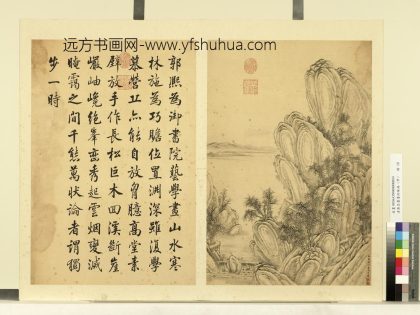 远方书画网-www.yfshuhua.com
郭熙為御書院藝學畫山水寒
林施為巧贍位置淵深雖復學
慕營丘亦能自放胸臆高堂素
壁放手作長松巨木回溪斷崖
巖岫巉絕峯巒秀起雲烟變滅
晻靄之間千態萬狀論者謂獨
步一時